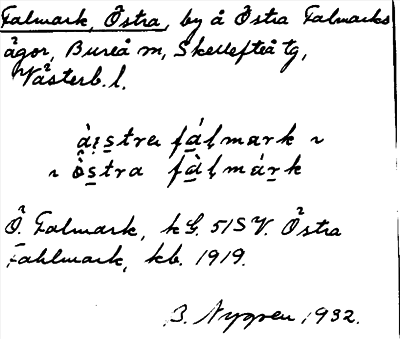 Falmark, Östra, by å Östra Falmarks
ägor, Bureå m, Skellefteå tg,
Västerb. l.
àịs̱tra fá̱ḷmark ~
~ ö̀s̱tra fà̱ḷmáṟk
Ö. Falmark, k G. 51 S V. Östra
Fahlmark, kb. 1919.
B. Nygren 1932.